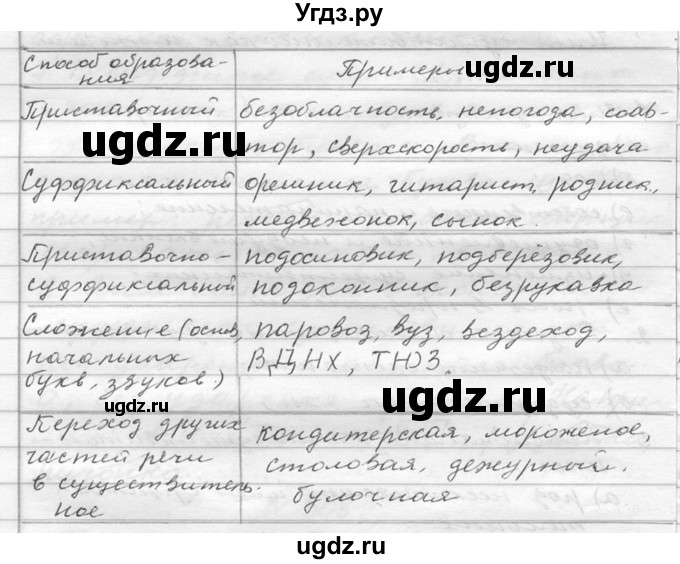 Угдз.ру
Способ образова-
ния
Примеры
ugdz.ru
Приставочный
безоблачность, непогода, соав-
тор, сверхскорость, неудача
ugdz.ru
Суффиксальный
орешник, гитарист, родник,
медвежонок, сынок.
ugdz.ru
Приставочно-
суффиксальный
подосиновик, подберёзовик,
подоконник, безрукавка
Сложение (основ,
начальных
букв, звуков.)
паровоз, вуз, вездеход,
ВДНХ, ТЮЗ.
ugdz.ru
ugdz.ru
Переход других
частей речи
в существитель-
ное
кондитерская, мороженое,
столовая, дежурный,
булочная
ugdz.ru
ugdz.ru